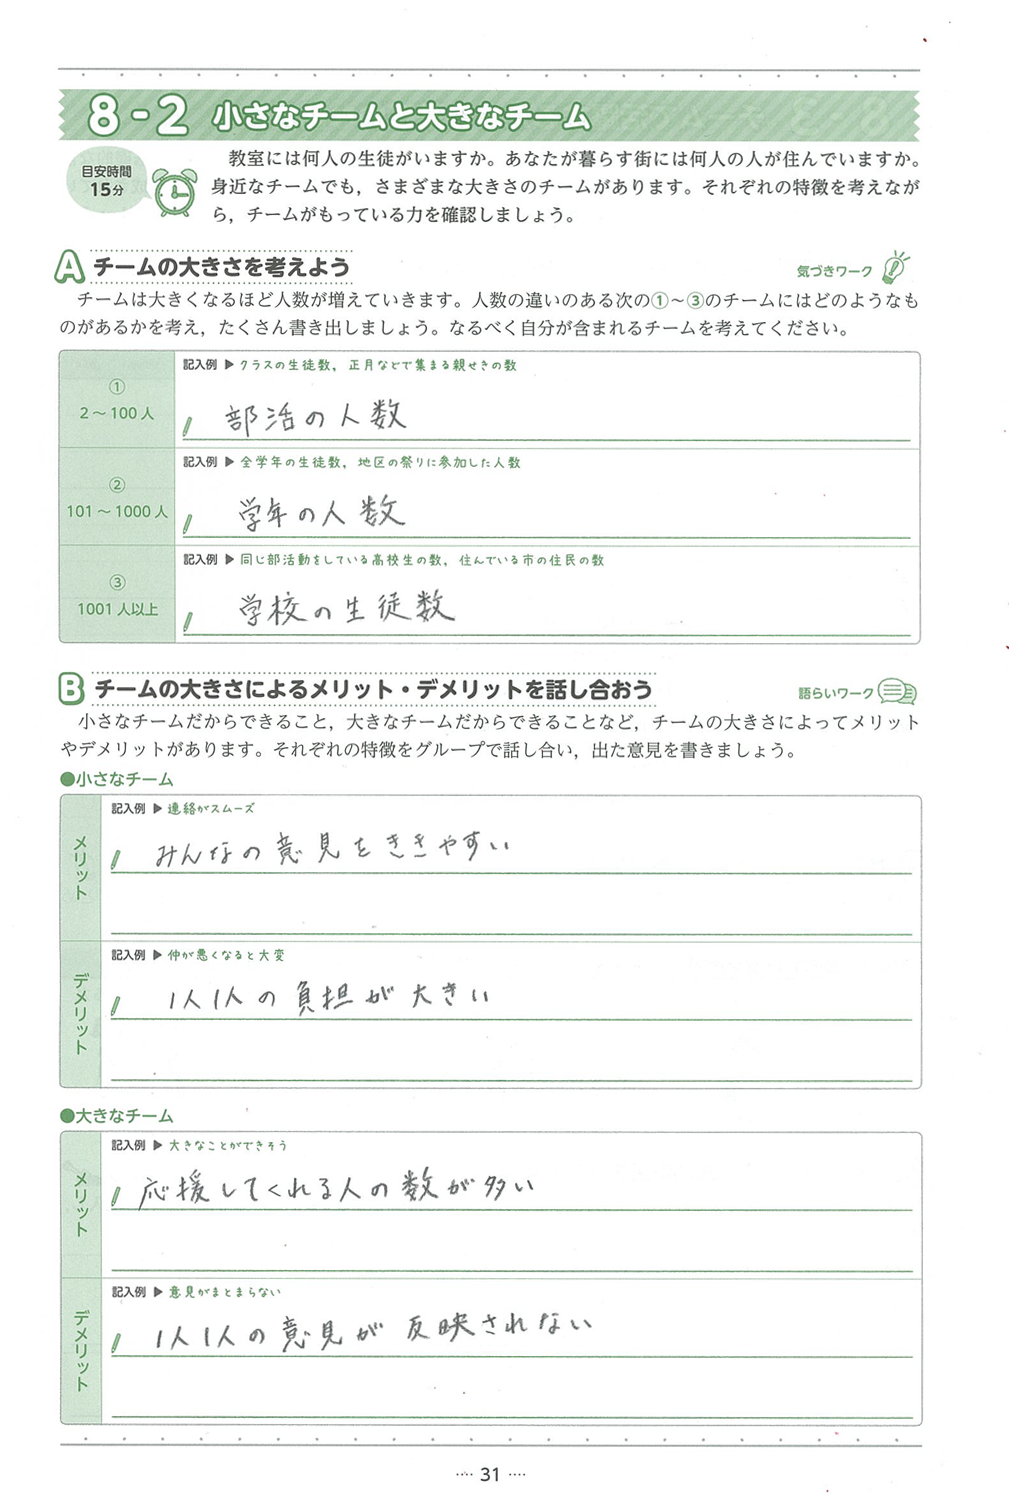 8-2 小さなチームと大きなチーム
目安時間
15分
教室には何人の生徒がいますか。あなたが暮らす街には何人の人が住んでいますか。
身近なチームでも，さまざまな大きさのチームがあります。それぞれの特徴を考えなが
ら，チームがもっている力を確認しましょう。
A チームの大きさを考えよう
気づきワーク
チームは大きくなるほど人数が増えていきます。人数の違いのある次の①～③のチームにはどのようなも
のがあるかを考え，たくさん書き出しましょう。なるべく自分が含まれるチームを考えてください。
①
2～100人
記入例 ▶ クラスの生徒数，正月などで集まる親せきの数
部活の人数
②
101～1000人
記入例 ▶ 全学年の生徒数，地区の祭りに参加した人数
学年の人数
③
1001人以上
記入例 ▶ 同じ部活動をしている高校生の数，住んでいる市の住民の数
学校の生徒数
B チームの大きさによるメリット・デメリットを話し合おう
語らいワーク
小さなチームだからできること，大きなチームだからできることなど，チームの大きさによってメリット
やデメリットがあります。それぞれの特徴をグループで話し合い，出た意見を書きましょう。
●小さなチーム
メリット
記入例 ▶ 連絡がスムーズ
みんなの意見をききやすい
デメリット
記入例 ▶ 仲が悪くなると大変
1人1人の負担が大きい
●大きなチーム
メリット
記入例 ▶ 大きなことができそう
応援してくれる人の数が多い
デメリット
記入例 ▶ 意見がまとまらない
1人1人の意見が反映されない
···· 31 ····